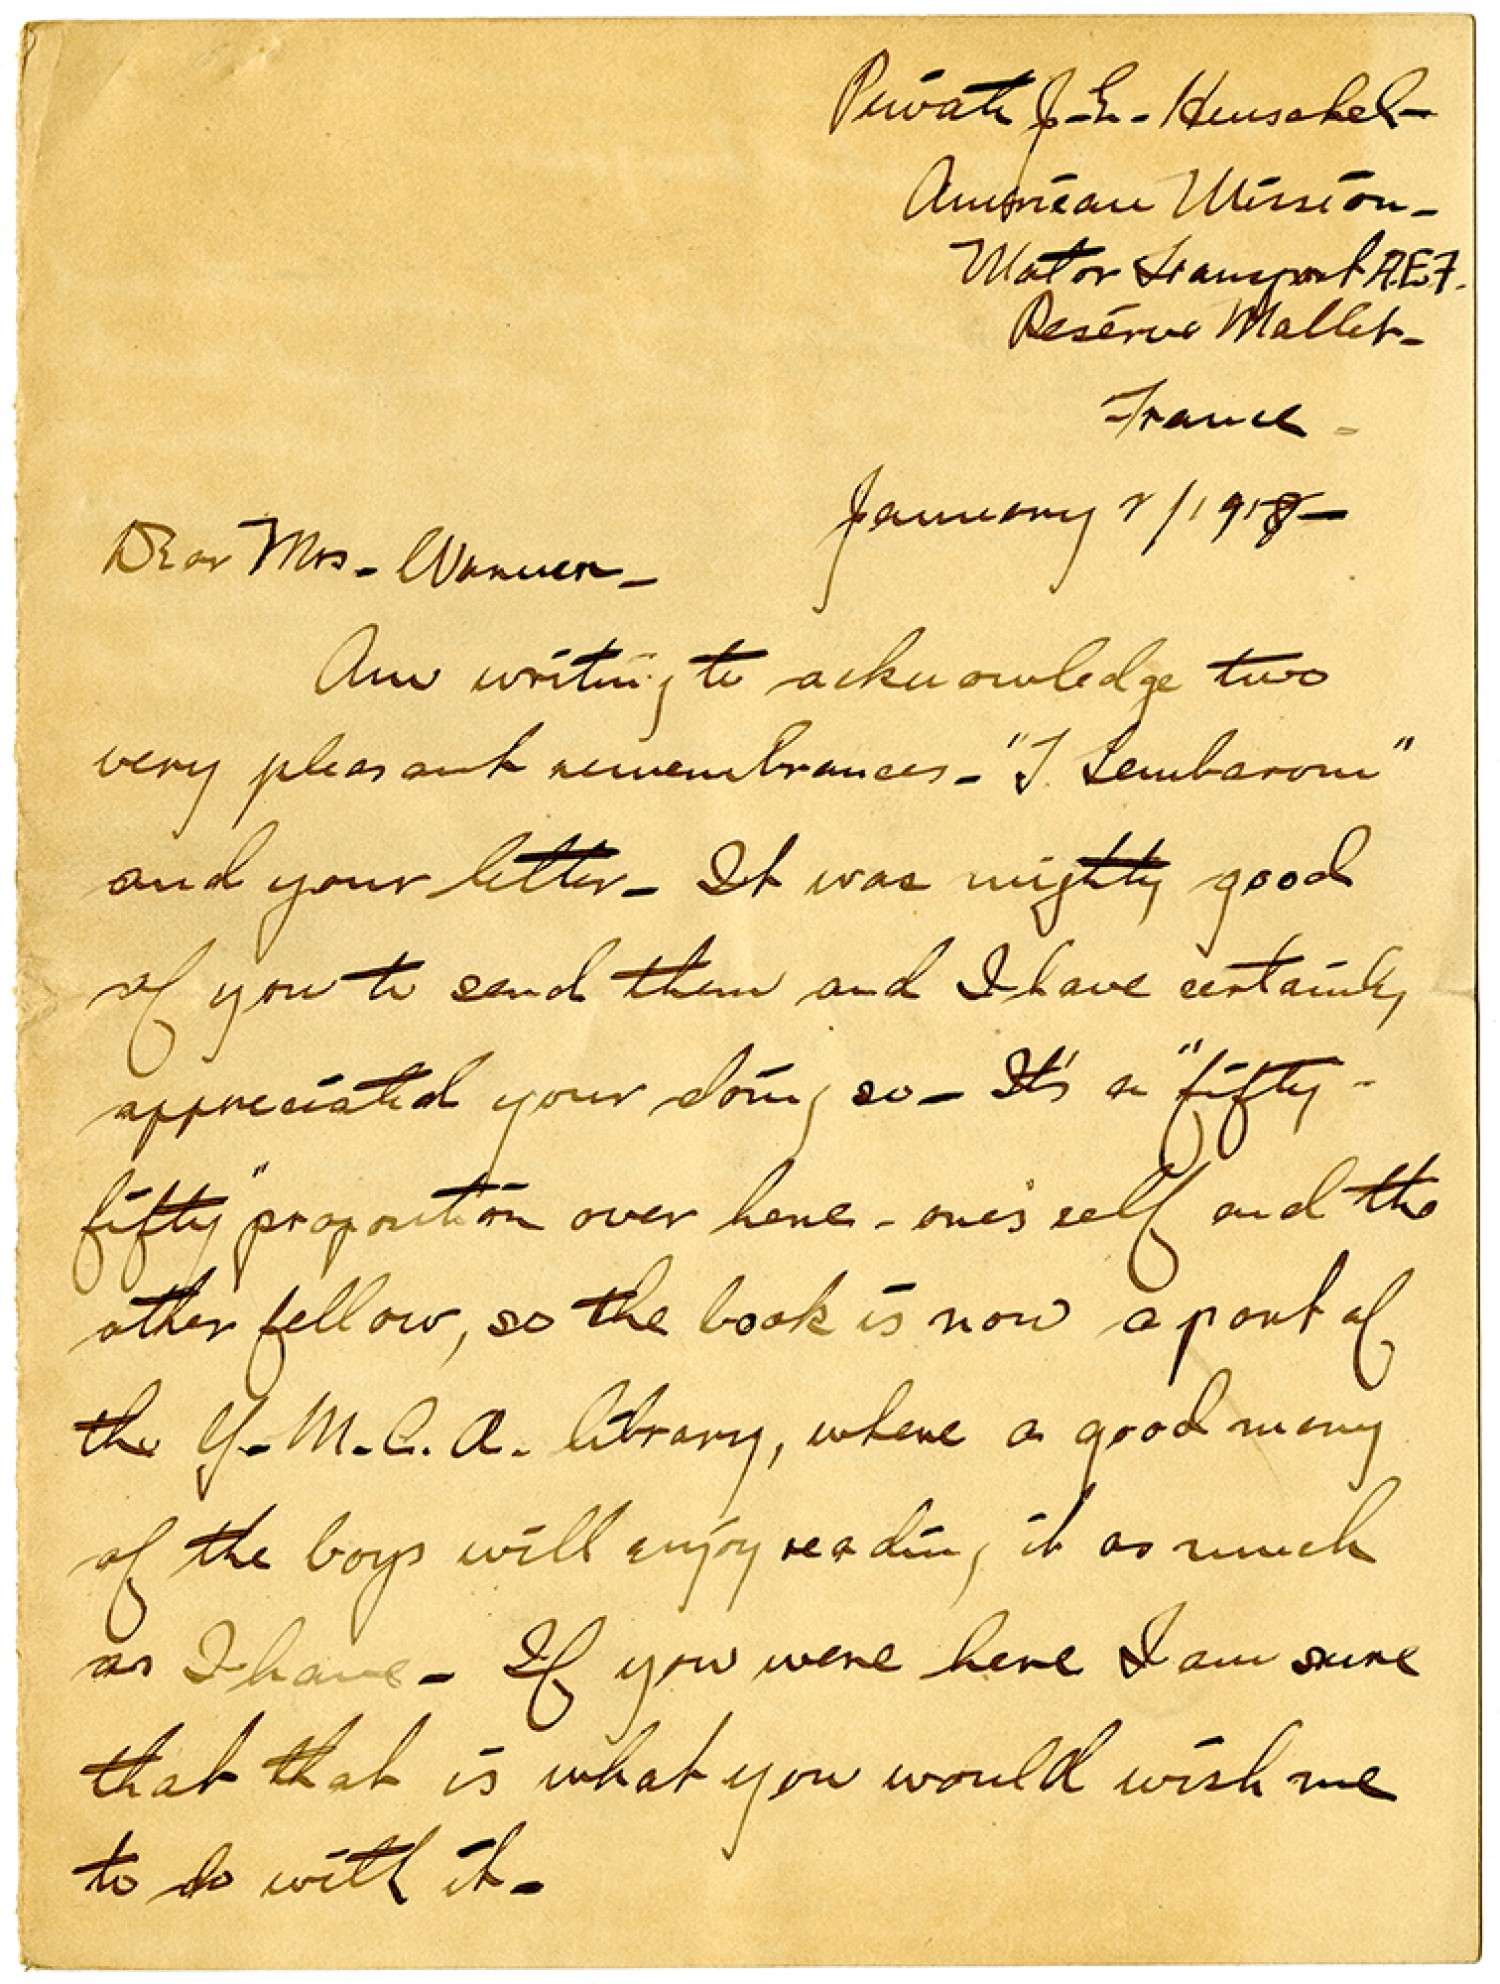 Private J-E- Henschel-
American Mission-
Motor Transport A.E.F.
Reserve Mallet-
France -
January 2/1918-
Dear Mrs- Warner-
Am writing to acknowledge two
very pleasant remembrances- "T. Tembarom"
and your letter- It was mighty good
of you to send them and I have certainly
appreciated your doing so- It's a "fifty-
fifty" proposition over here - one's self and the
other fellow, so the book is now a part of
the Y-M.C.A. library, where a good many
of the boys will enjoy reading it as much
as I have- If you were here I am sure
that that is what you would wish me
to do with it-